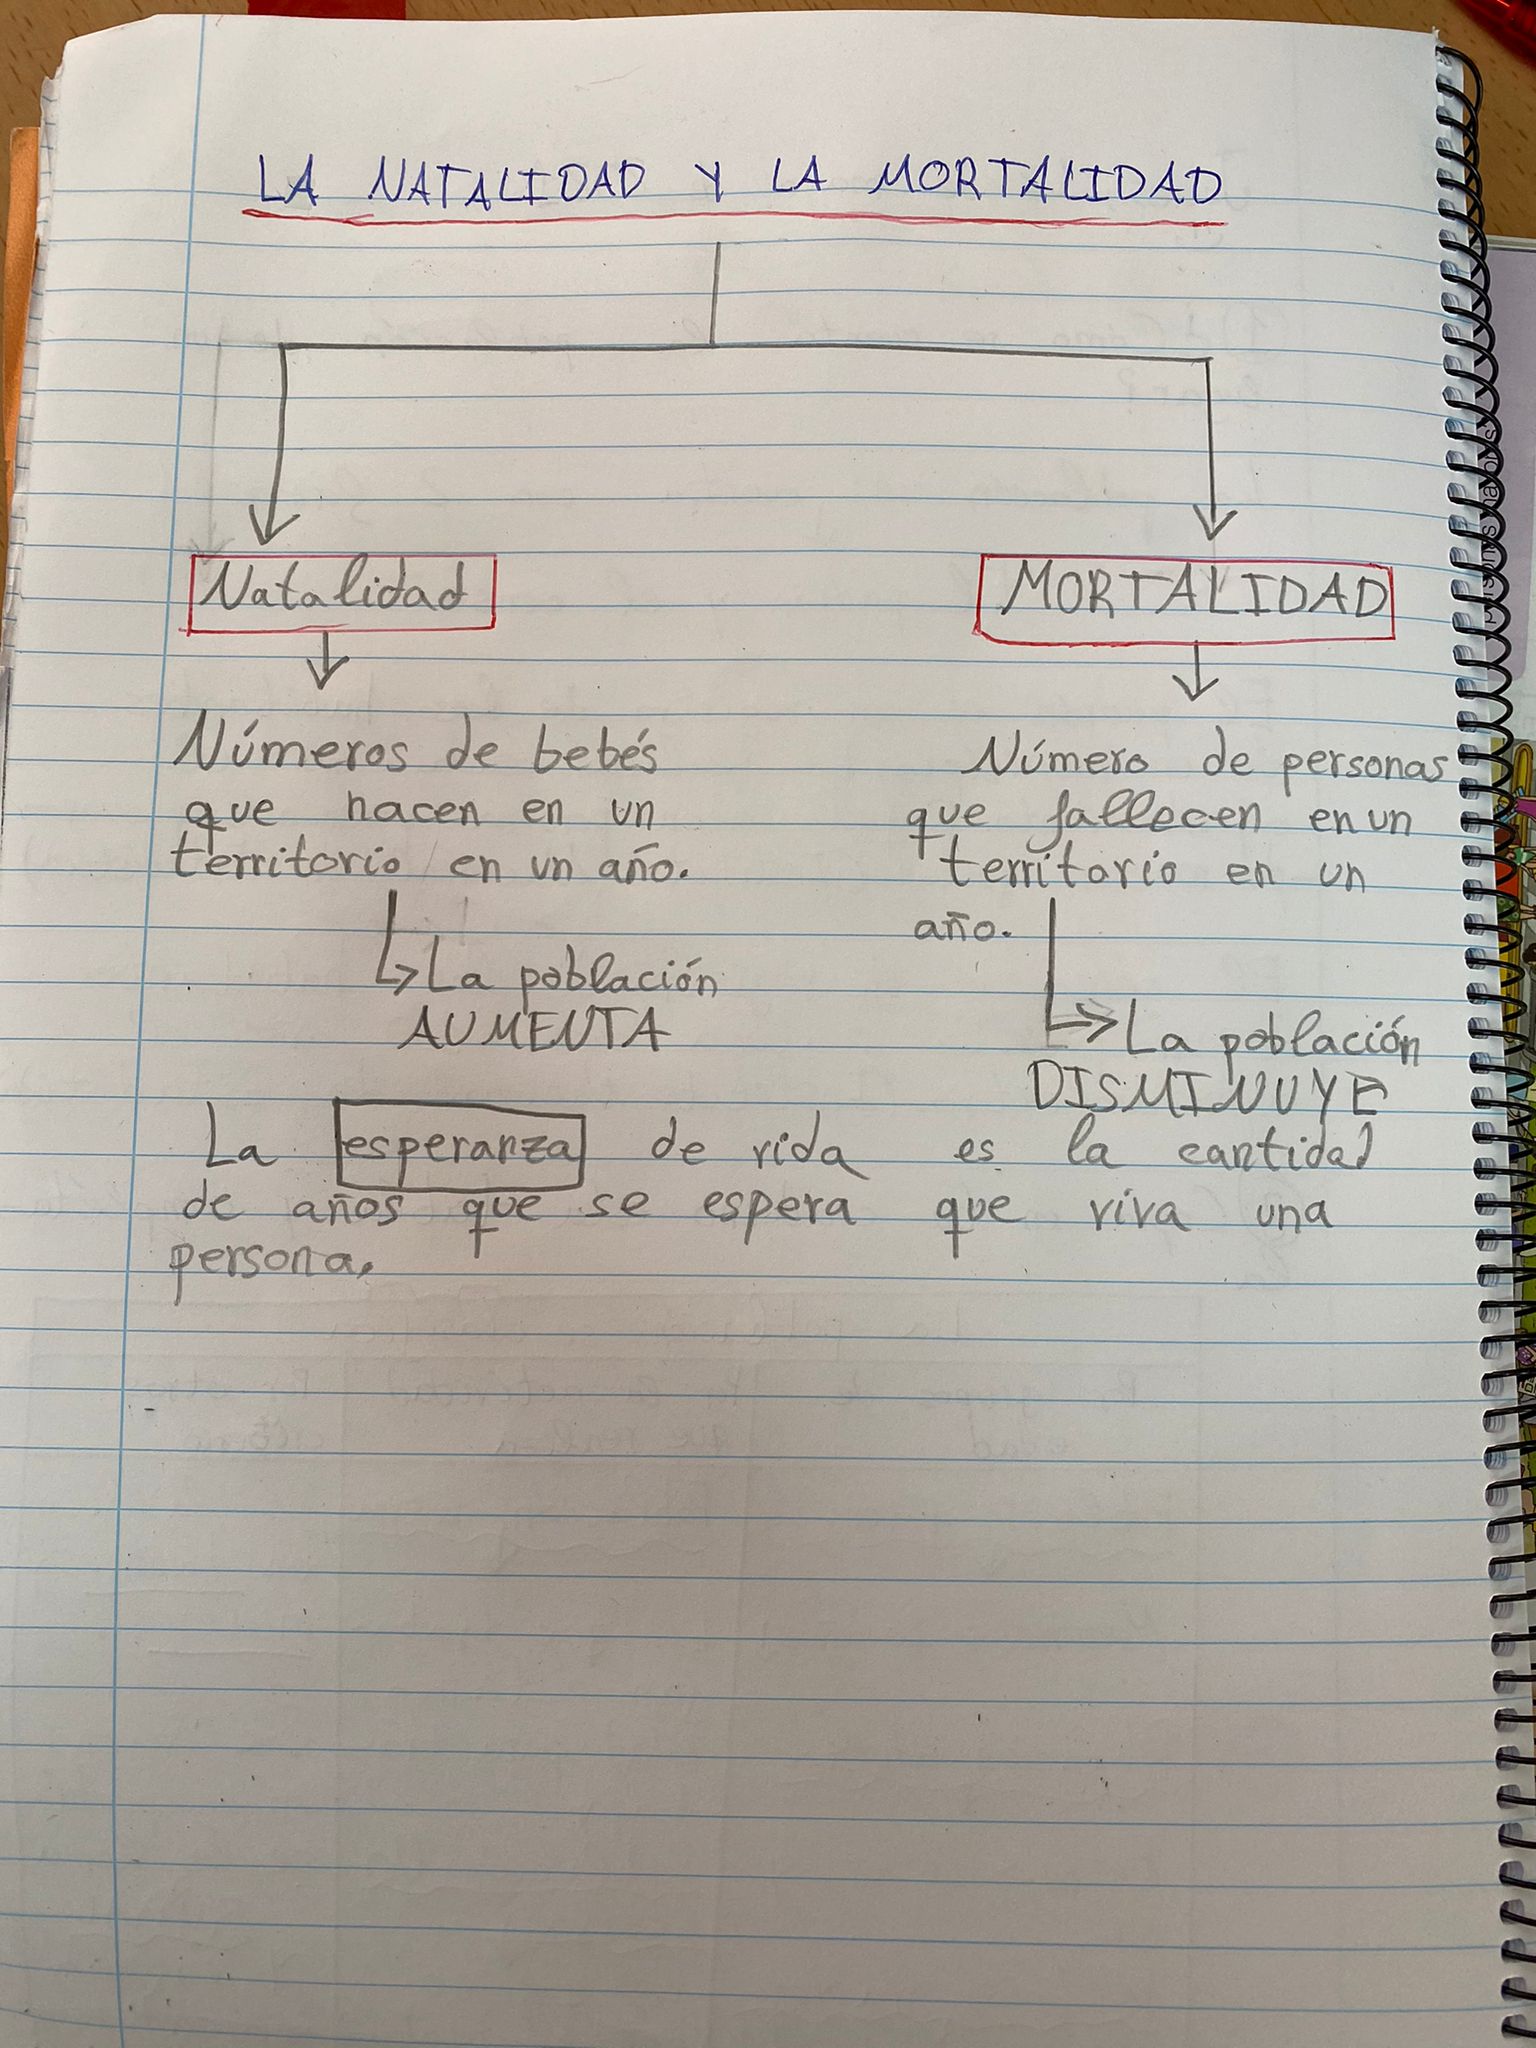 LA NATALIDAD Y LA MORTALIDAD
Natalidad
Números de bebés
que nacen en un
territorio en un año.
La población
AUMENTA
MORTALIDAD
Número de personas
que fallecen en un
territorio en un
año.
La población
DISMINUYE
La esperanza de vida es la cantidad
de años que se espera que viva una
persona.